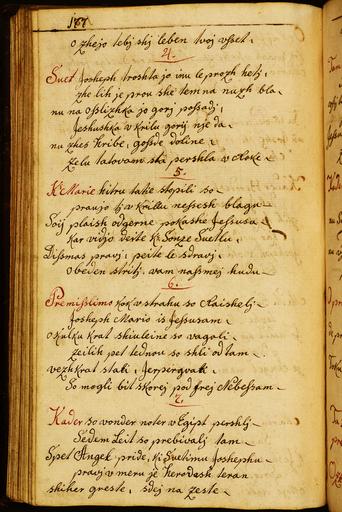 188.
O zhejo tebj shj leben tvoj usset.
4.
Suet Josheph troshta jo inu leprozh hetj,
zhe lih je prou she tem na nuzh bla.
nu na Osslizhka jo gorj possadj,
Jeshushka v krilu gorij nje da.
nu zhes hribe, gossde doline.
zelu tatovam ska pershla v Roke.
5.
K. Marie hitru take stopili so
pravjo tj v krillu nessesh blagu
Soij plaish odgerne pokashe Jessusa
kar vidjo deite kt Sonze Suetlu.
Dissmas pravj, peite le sdravj.
obeden stritj. vam nassmej hudu.
6.
Premisslimo kok v strahu so Raishelj.
Josheph Mario is Jessusam.
Okulku krat skiuleine so vagali.
zeilih pet tednou so shli od tam.
vezhkrat stali, Jerpergvali.
So mogli bit skorej pod frej Nebessam.
7.
Kader so vonder noter v Egipt pershlj
Sedem Leit so prebivalj tam.
Spet Angel pride, k' Suetimu Joshephu.
pravj v meru je Herodash teran
skiher greste, sdej na zeste.